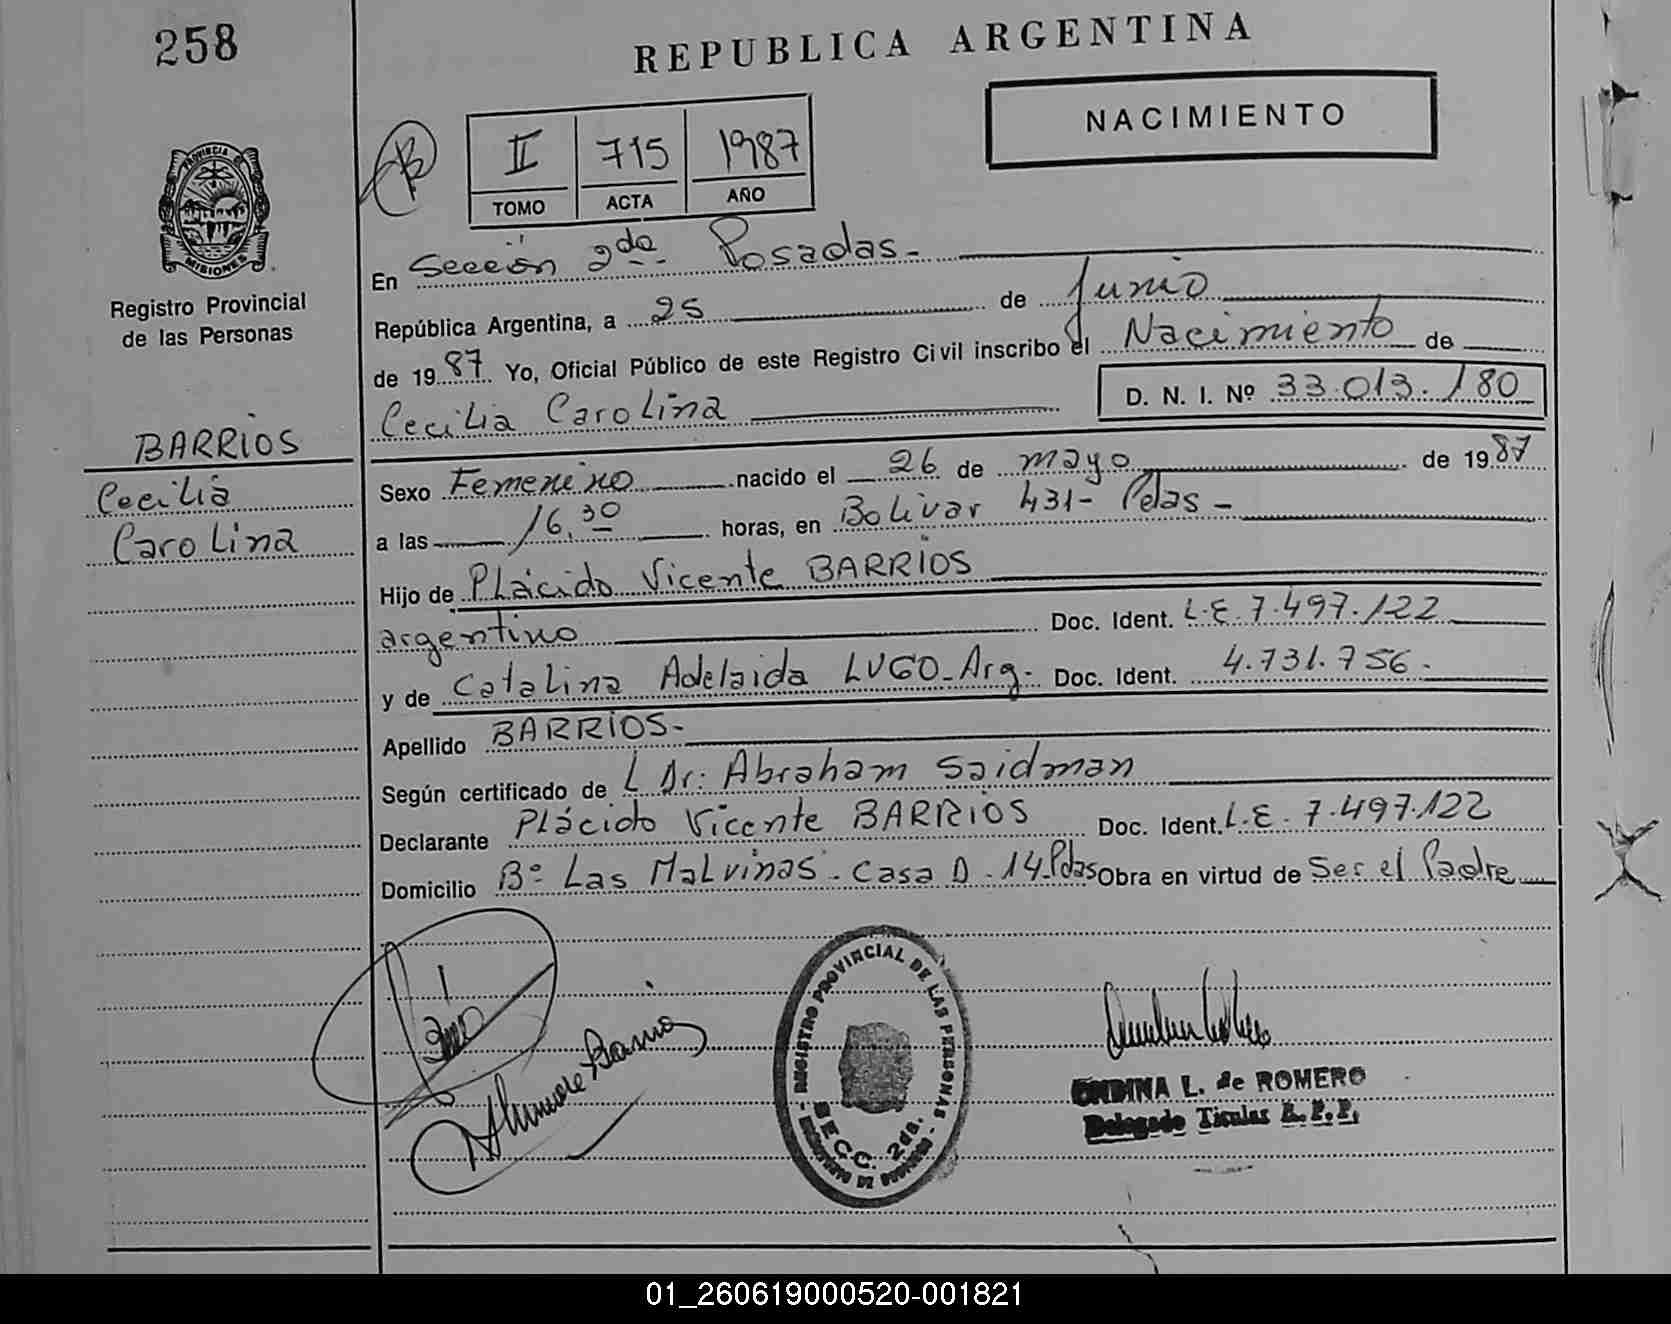 258
REPUBLICA ARGENTINA
NACIMIENTO
II 715 1987
TOMO ACTA AÑO
PROVINCIA
MISIONES
Registro Provincial
de las Personas
En Sección 2da. Posadas.-
República Argentina, a 25 de Junio
de 1987 Yo, Oficial Público de este Registro Civil inscribo el Nacimiento de
Cecilia Carolina D. N. I. Nº 33.013.180
BARRIOS
Cecilia
Carolina
Sexo Femenino nacido el 26 de mayo de 1987
a las 16,30 horas, en Bolivar 431- Pdas-
Hijo de Plácido Vicente BARRIOS
argentino Doc. Ident. L.E. 7.497.122
y de Catalina Adelaida LUGO-Arg. Doc. Ident. 4.731.756.
Apellido BARRIOS-
Según certificado de L Dr: Abraham Saidman
Declarante Plácido Vicente BARRIOS Doc. Ident. L.E. 7.497.122
Domicilio Bº Las Malvinas. Casa D-14-Pdas Obra en virtud de Ser el Padre
REGISTRO PROVINCIAL DE LAS PERSONAS
SECC. 2da.
ONDINA L. de ROMERO
Delegado Titular R. P. P.
01_260619000520-001821